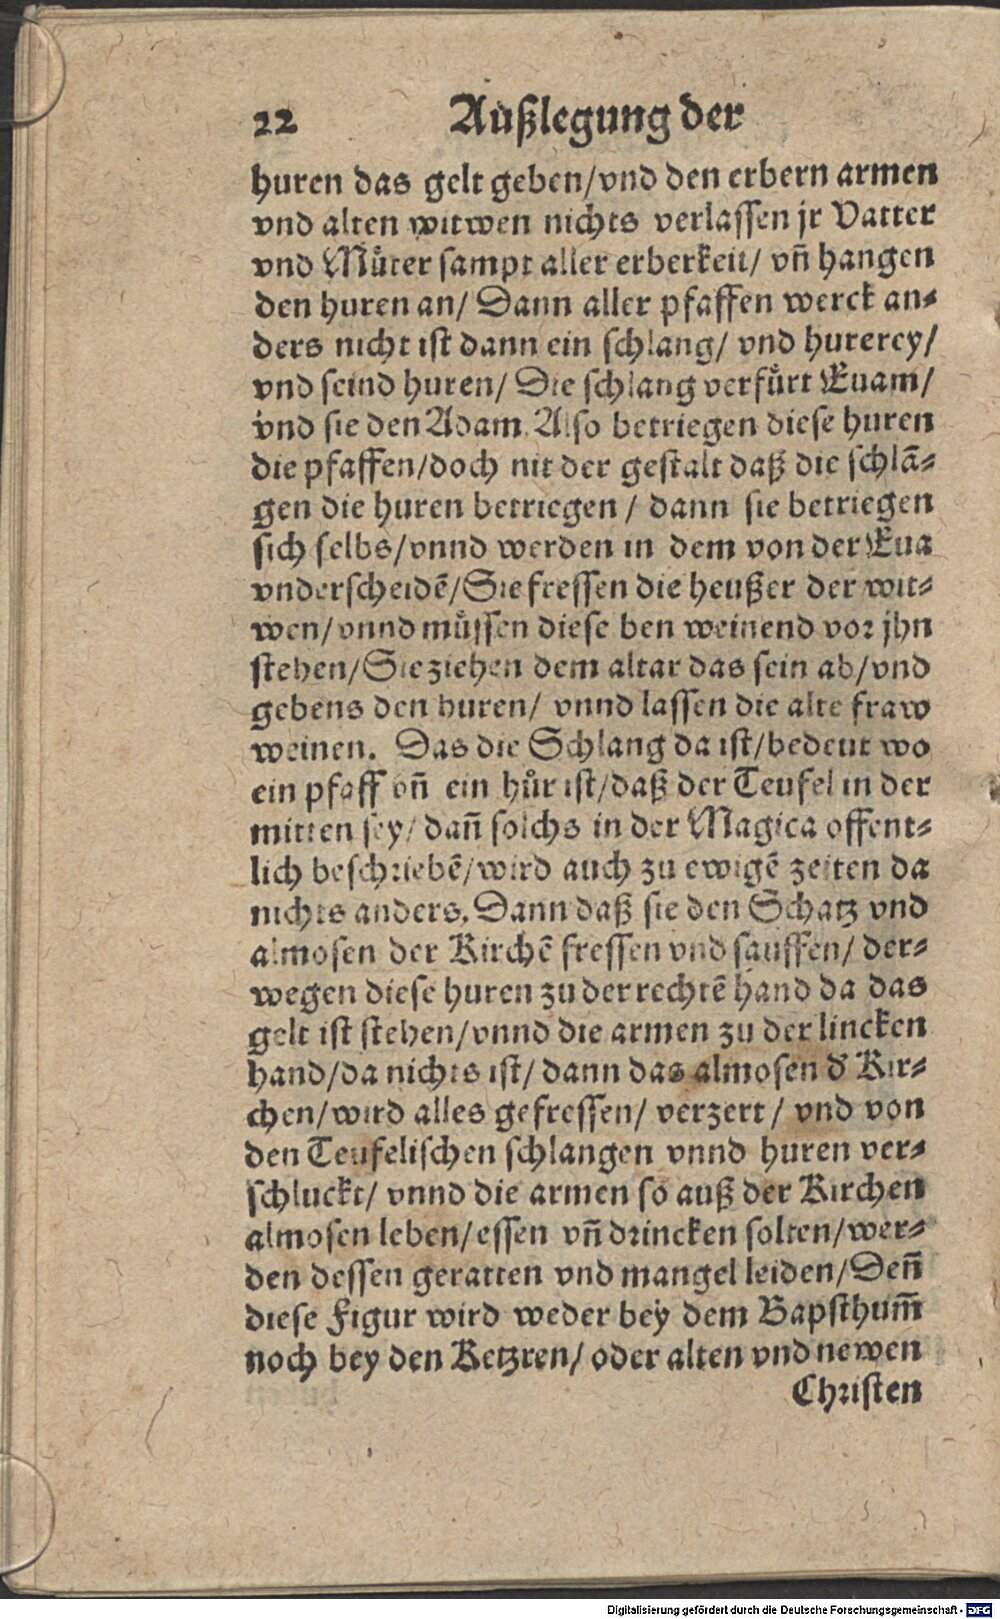 22 Außlegung der
huren das gelt geben/vnd den erbern armen
vnd alten witwen nichts verlassen jr Vatter
vnd Můter sampt aller erberkeit/ vn̄ hangen
den huren an/ Dann aller pfaffen werck an⸗
ders nicht ist dann ein schlang/ vnd hurerey/
vnd seind huren/ Die schlang verfůrt Euam/
vnd sie den Adam. Also betriegen diese huren
die pfaffen/doch nit der gestalt daß die schlā⸗
gen die huren betriegen/ dann sie betriegen
sich selbs/vnnd werden in dem von der Eua
vnderscheidē/Sie fressen die heußer der wit⸗
wen/vnnd můssen diese ben weinend vor jhn
stehen/Sie ziehen dem altar das sein ab/vnd
gebens den huren/ vnnd lassen die alte fraw
weinen. Das die Schlang da ist/bedeut wo
ein pfaff vn̄ ein hůr ist/daß der Teufel in der
mitten sey/ dan̄ solchs in der Magica offent⸗
lich beschriebē/wird auch zu ewigē zeiten da
nichts anders, Dann daß sie den Schatz vnd
almosen der Kirchē fressen vnd sauffen/ der⸗
wegen diese huren zu der rechtē hand da das
gelt ist stehen/vnnd die armen zu der lincken
hand/da nichts ist/ dann das almosen d' Kir⸗
chen/wird alles gefressen/ verzert/ vnd von
den Teufelischen schlangen vnnd huren ver⸗
schluckt/ vnnd die armen so auß der Kirchen
almosen leben/essen vn̄ drincken solten/wer⸗
den dessen geratten vnd mangel leiden/Den̄
diese Figur wird weder bey dem Bapsthum̄
noch bey den Ketzren/ oder alten vnd newen
Christen
Digitalisierung gefördert durch die Deutsche Forschungsgemeinschaft - DFG